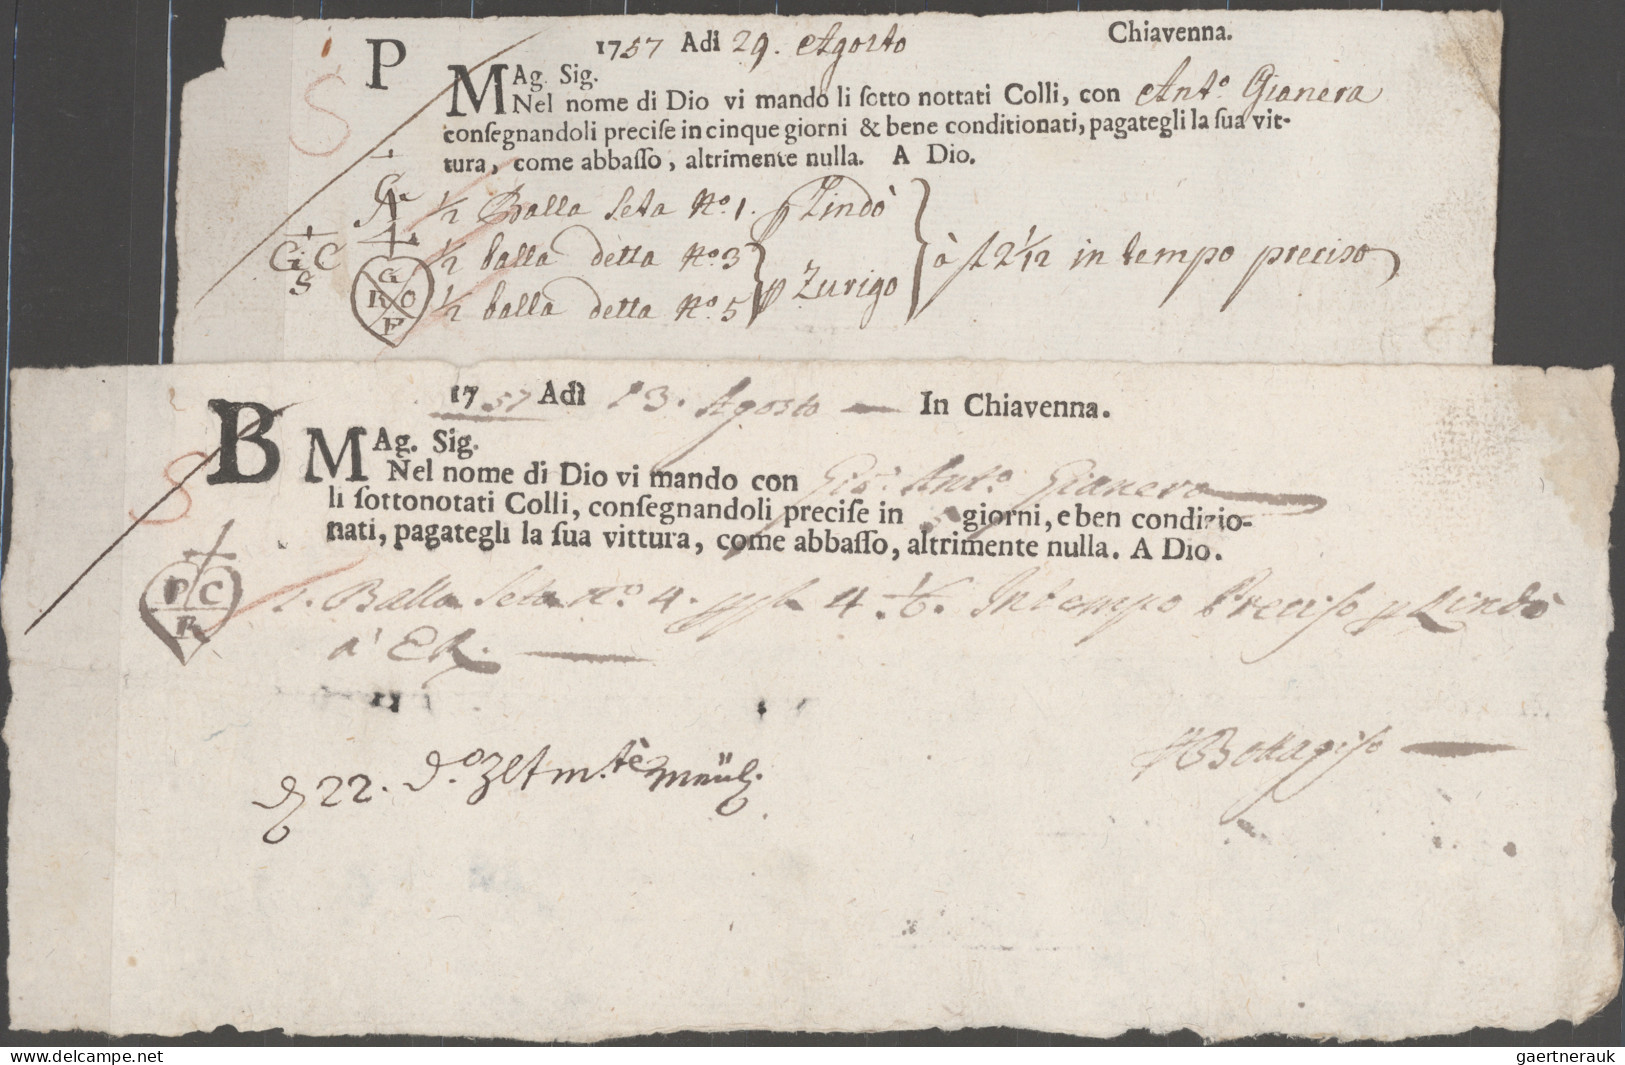 P
1757 Adì 29. Agosto Chiavenna.
MAg. Sig.
Nel nome di Dio vi mando li ſotto nottati Colli, con Ant.º Gianera
conſegnandoli preciſe in cinque giorni & bene conditionati, pagategli la ſua vit-
tura, come abbaſſo, altrimente nulla. A Dio.
½ Balla Seta Nº. 1. Lindò
½ balla detta Nº. 3
à 2 1/12 in tempo preciso
G C
S
½ balla detta Nº. 5 Zurigo
G
R O
F
B
1757 Adì 13. Agosto — In Chiavenna.
MAg. Sig.
Nel nome di Dio vi mando con Gio. Ant.º Gianera
li ſottonotati Colli, conſegnandoli preciſe in giorni, e ben condizio-
nati, pagategli la ſua vittura, come abbaſſo, altrimente nulla. A Dio.
P C
F
1. Balla Seta nº. 4. 4 1/6. In tempo Preciſo Lindò
22.
gaertnerauk © delcampe.net